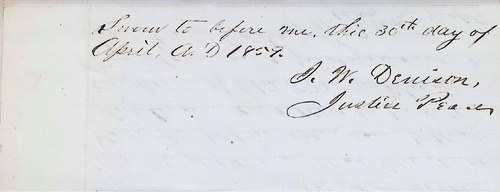 Sworn to before me, this 30th day of
April, A.D 1857.
J. W. Denison,
Justice Peace